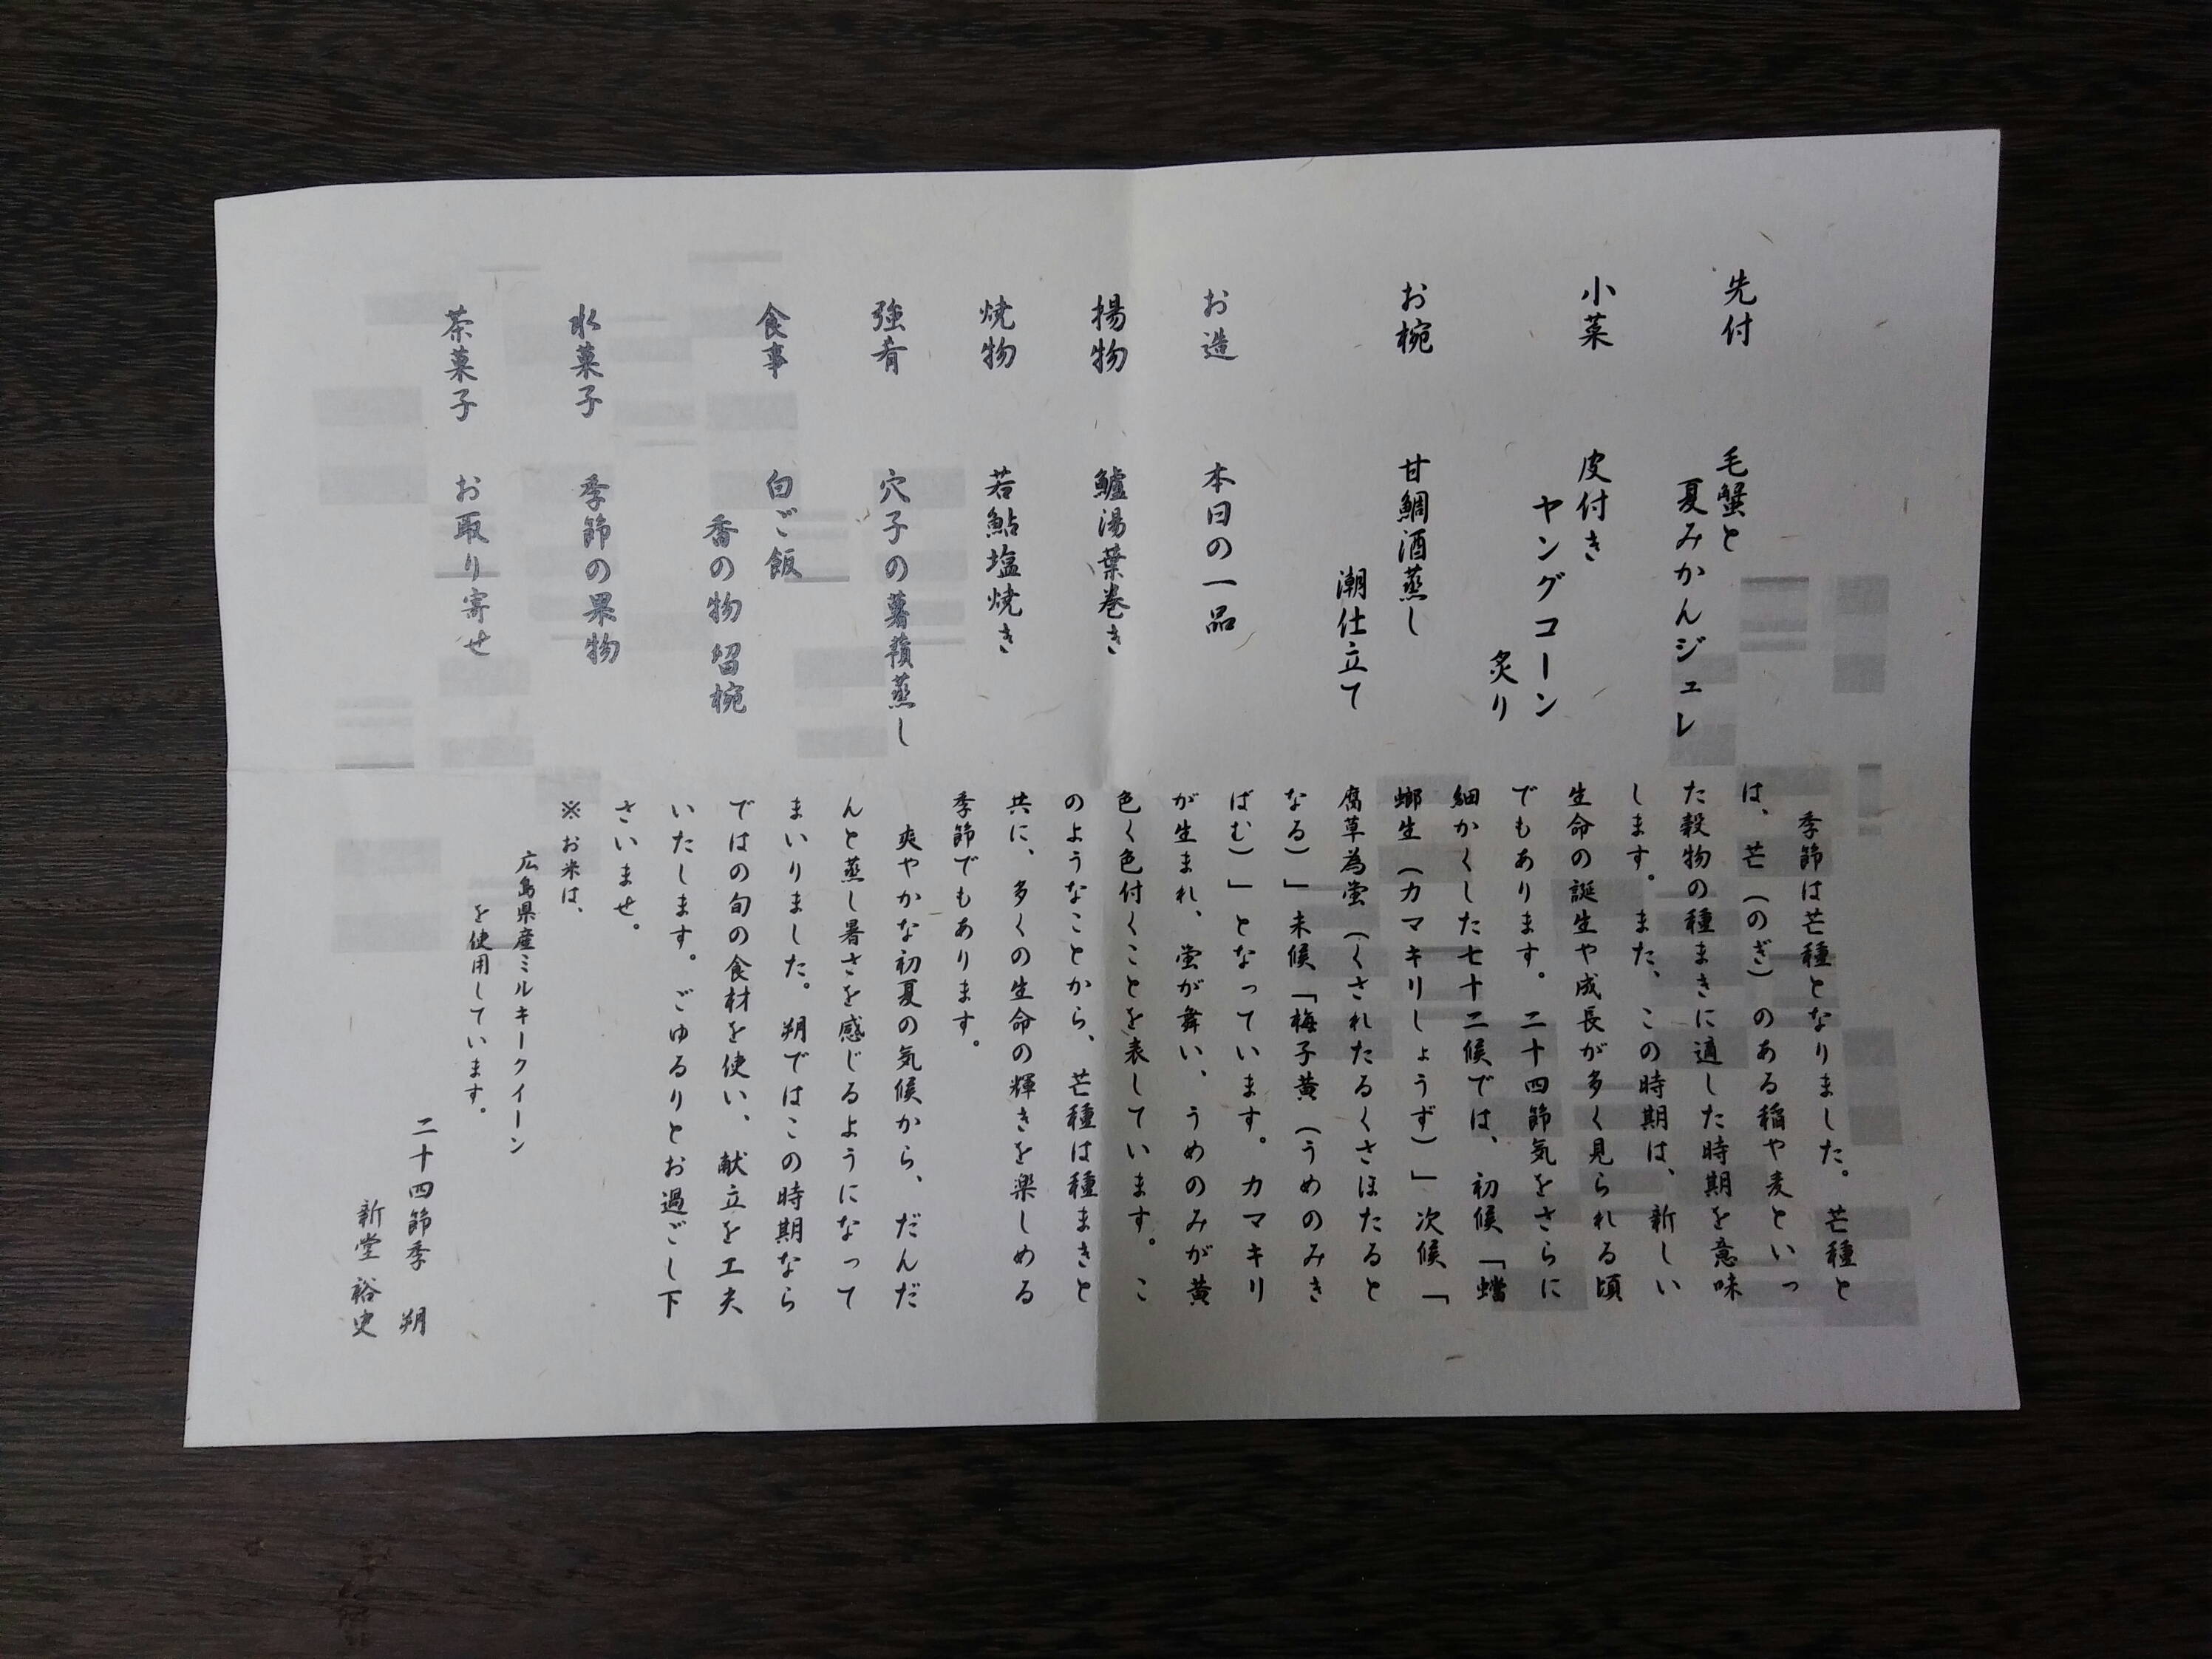 先付
毛蟹と
夏みかんジュレ
小菜
皮付き
ヤングコーン
炙り
お椀
甘鯛酒蒸し
潮仕立て
お造
本日の一品
揚物
鱸湯葉巻き
焼物
若鮎塩焼き
強肴
穴子の薯蕷蒸し
食事
白ご飯
香の物 留椀
水菓子
季節の果物
茶菓子
お取り寄せ
季節は芒種となりました。芒種と
は、芒(のぎ)のある稲や麦といっ
た穀物の種まきに適した時期を意味
します。また、この時期は、新しい
生命の誕生や成長が多く見られる頃
でもあります。二十四節気をさらに
細かくした七十二候では、初候「蟷
螂生(カマキリしょうず)」次候「
腐草為蛍(くされたるくさほたると
なる)」末候「梅子黄(うめのみき
ばむ)」となっています。カマキリ
が生まれ、蛍が舞い、うめのみが黄
色く色付くことを表しています。こ
のようなことから、芒種は種まきと
共に、多くの生命の輝きを楽しめる
季節でもあります。
爽やかな初夏の気候から、だんだ
んと蒸し暑さを感じるようになって
まいりました。朔ではこの時期なら
ではの旬の食材を使い、献立を工夫
いたします。ごゆるりとお過ごし下
さいませ。
※お米は、
広島県産ミルキークイーン
を使用しています。
二十四節季 朔
新堂 裕史